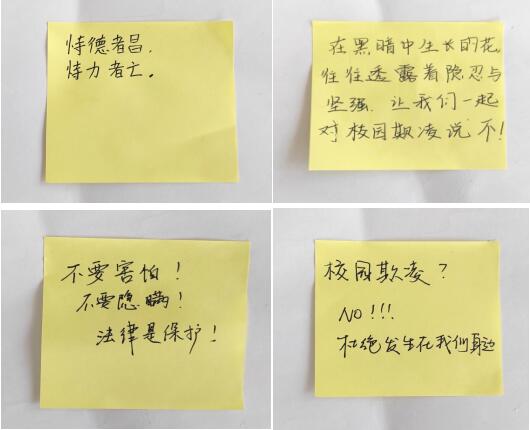 恃德者昌,
恃力者亡。
在黑暗中生长的花,
往往透露着隐忍与
坚强,让我们一起
对校园欺凌说不!
不要害怕!
不要隐瞒!
法律是保护!
校园欺凌?
NO!!!
杜绝发生在我们身边